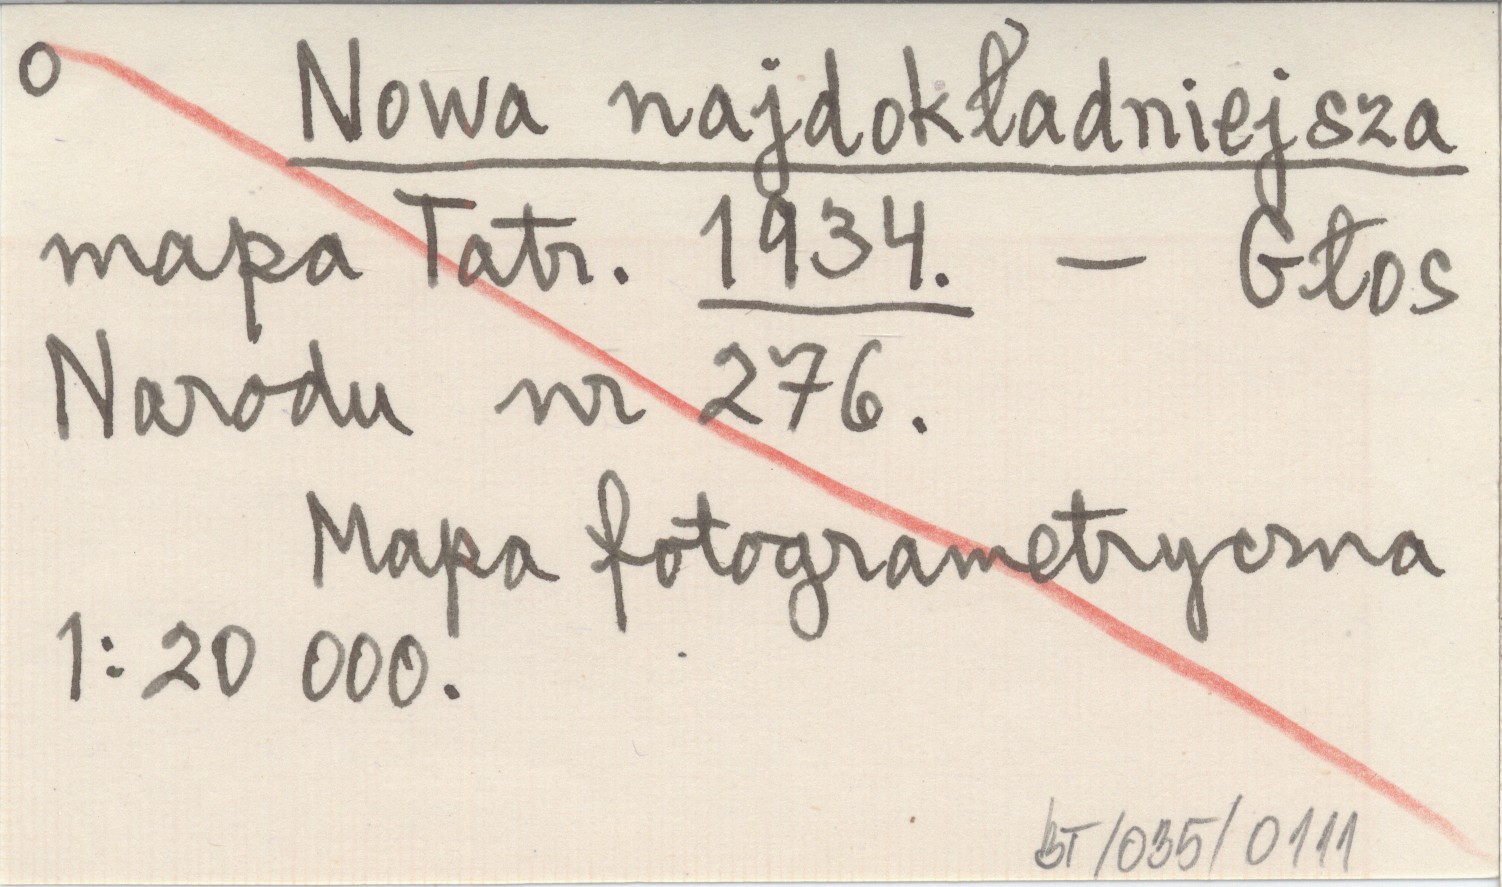 O Nowa najdokładniejsza
mapa Tatr. 1934. – Głos
Narodu nr 276.
Mapa fotogrametryczna
1:20 000.
BT/035/0111